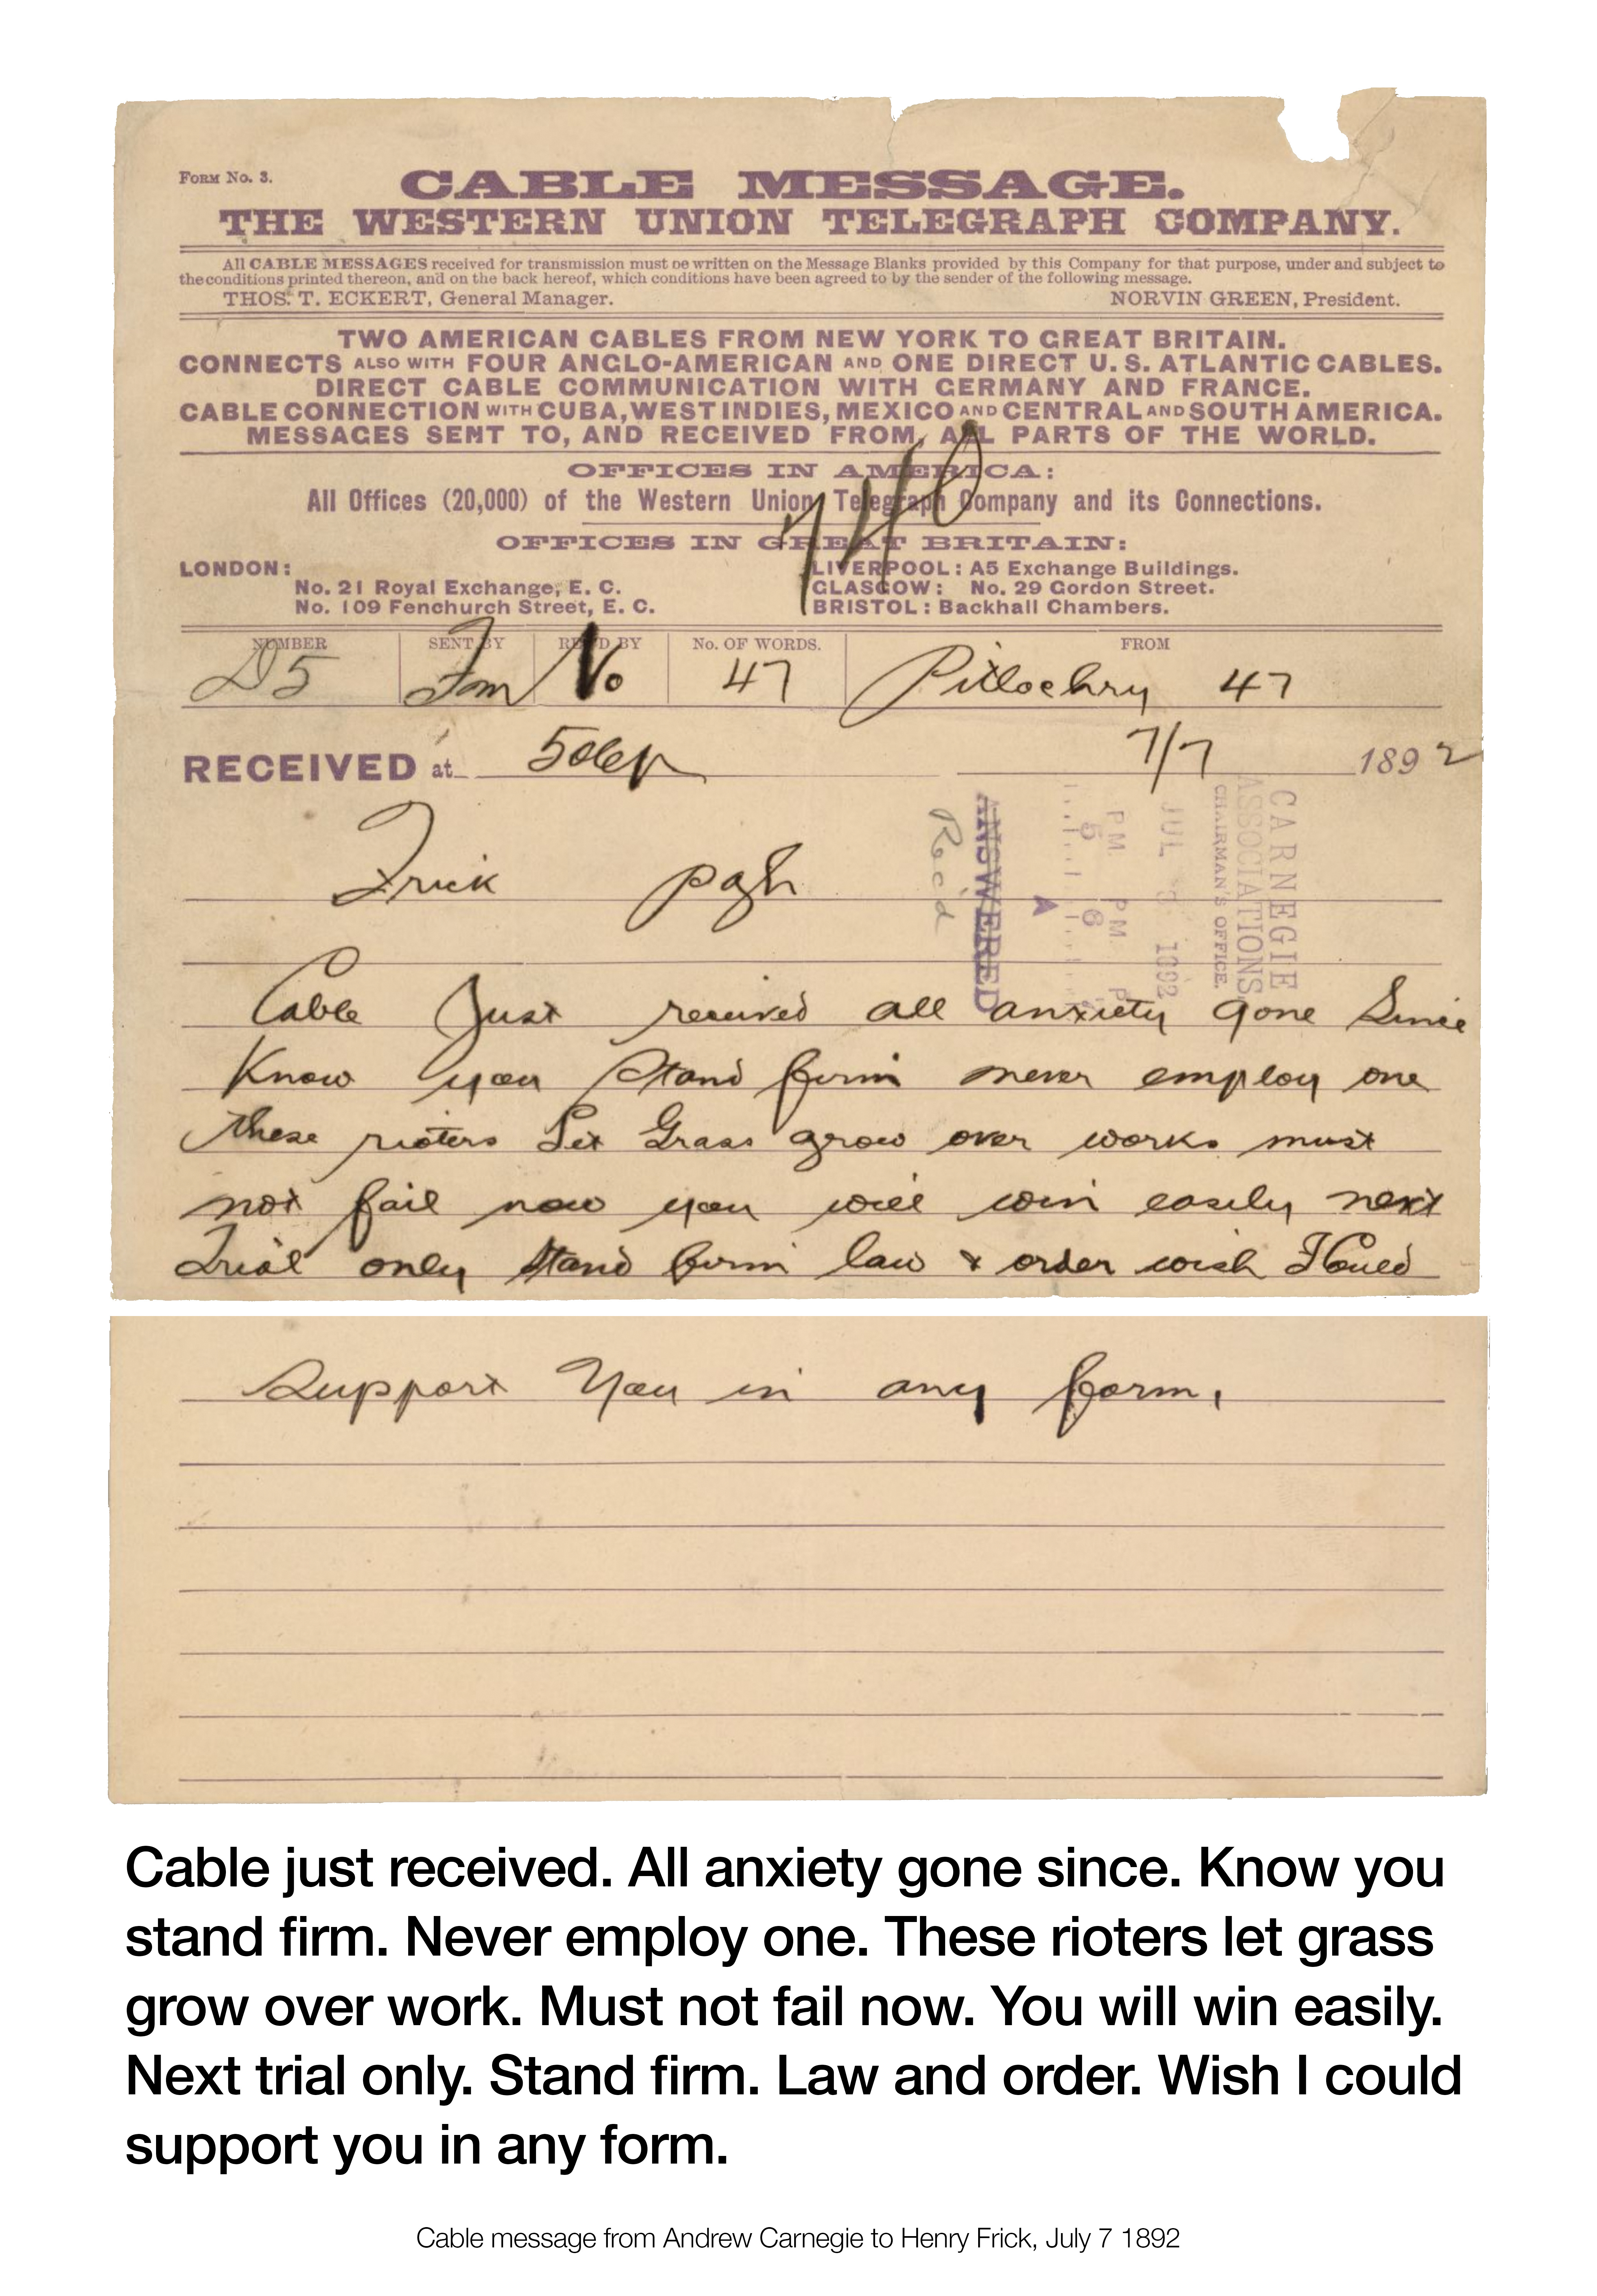 Form No. 3.
CABLE MESSAGE.
THE WESTERN UNION TELEGRAPH COMPANY.
All CABLE MESSAGES received for transmission must be written on the Message Blanks provided by this Company for that purpose, under and subject to
the conditions printed thereon, and on the back hereof, which conditions have been agreed to by the sender of the following message.
THOS. T. ECKERT, General Manager. NORVIN GREEN, President.
TWO AMERICAN CABLES FROM NEW YORK TO GREAT BRITAIN.
CONNECTS ALSO WITH FOUR ANGLO-AMERICAN AND ONE DIRECT U. S. ATLANTIC CABLES.
DIRECT CABLE COMMUNICATION WITH GERMANY AND FRANCE.
CABLE CONNECTION WITH CUBA, WEST INDIES, MEXICO AND CENTRAL AND SOUTH AMERICA.
MESSAGES SENT TO, AND RECEIVED FROM, ALL PARTS OF THE WORLD.
OFFICES IN AMERICA:
All Offices (20,000) of the Western Union Telegraph Company and its Connections.
740
OFFICES IN GREAT BRITAIN:
LONDON: LIVERPOOL: A5 Exchange Buildings.
No. 21 Royal Exchange, E. C. GLASGOW: No. 29 Gordon Street.
No. 109 Fenchurch Street, E. C. BRISTOL: Backhall Chambers.
NUMBER SENT BY REC'D BY No. OF WORDS. FROM
D5 No 47 Pitlochry 47
RECEIVED at 7/7 1892
CARNEGIE
ASSOCIATIONS
CHAIRMAN'S OFFICE.
JUL 1892
PM PM
5 6
ANSWERED
Rec'd
Frick pgh
Cable Just received all anxiety gone Since
Know you Stand firm never employ one
these rioters Let Grass grow over works must
not fail now you will win easily next
Trial only stand firm law & order wish I Could
Support You in any form.
Cable just received. All anxiety gone since. Know you
stand firm. Never employ one. These rioters let grass
grow over work. Must not fail now. You will win easily.
Next trial only. Stand firm. Law and order. Wish I could
support you in any form.
Cable message from Andrew Carnegie to Henry Frick, July 7 1892